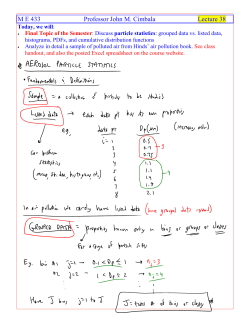 M E 433 Professor John M. Cimbala Lecture 38
Today, we will:
• Final Topic of the Semester: Discuss particle statistics: grouped data vs. listed data, histograms, PDFs, and cumulative distribution functions
• Analyze in detail a sample of polluted air from Hinds' air pollution book. See class handout, and also the posted Excel spreadsheet on the course website.
AEROSOL PARTICLE STATISTICS
• Fundamentals & Definitions
Sample = a collection of particles to be studied
Listed data → each data pt has its own properties
e.g. data pt Dp (µm)
j=1 0.5
2 0.7
3 0.75
4 1.1
5 1.1
6
7 1.8
8 2.1
3
4
Can perform statistics
In air pollution we rarely have listed data
GROUPED DATA = properties known only in bins or groups or classes
For a range of particle sizes
E.g. bin #1 j=1 → 0.1 < Dp ≤ 1 → n1=3
#2 j=2 → 1 < Dp ≤ 2 → n2=4
Have J bins j=1 to J
J = total # of bins or classes